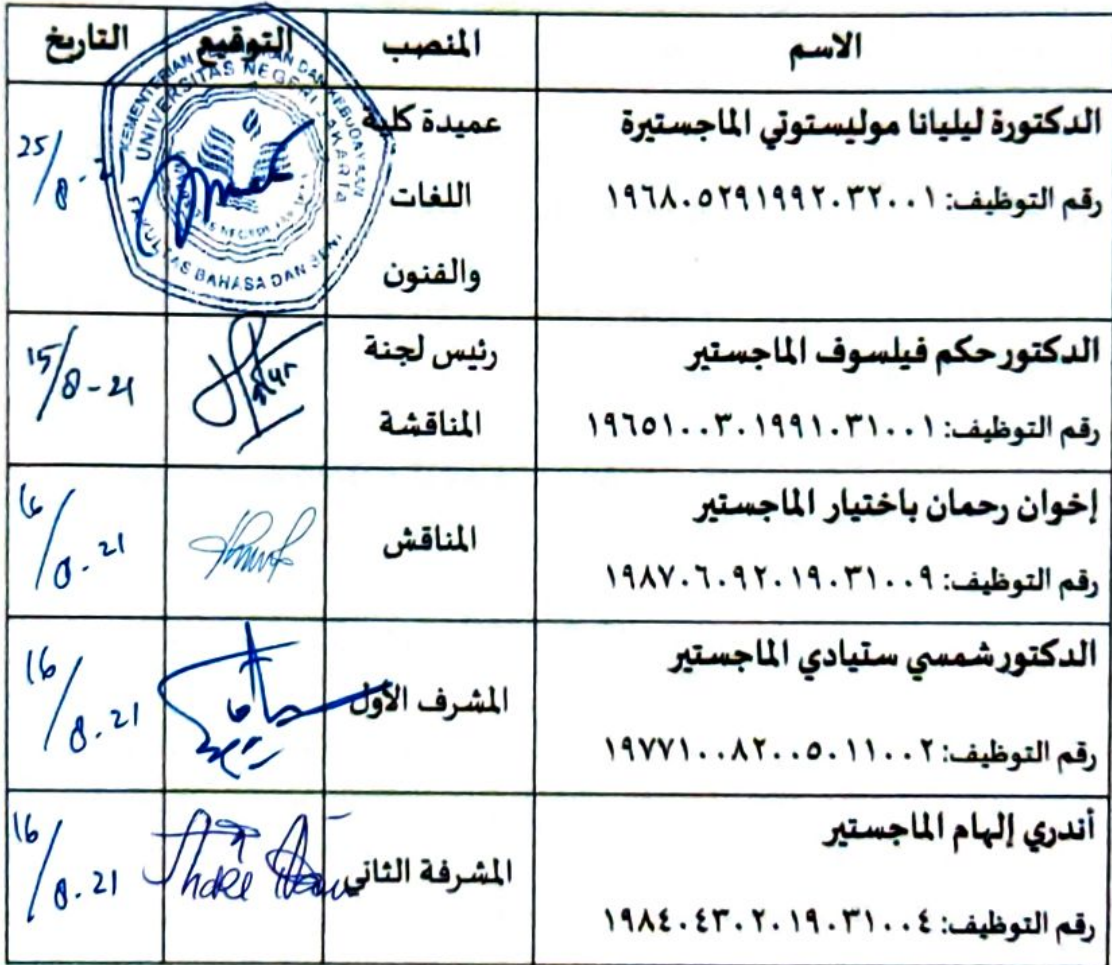 الاسم المنصب التوقيع التاريخ
الدكتورة ليليانا موليستوتي الماجستيرة
رقم التوظيف: ١٩٦٨٠٥٢٩١٩٩٢٠٣٢٠٠١
عميدة كلية
اللغات
والفنون
KEMENTERIAN DAN KEBUDAYAAN
UNIVERSITAS NEGERI JAKARTA
FAKULTAS BAHASA DAN SENI
25/8
الدكتور حكم فيلسوف الماجستير
رقم التوظيف: ١٩٦٥١٠٠٣٠١٩٩١٠٣١٠٠١
رئيس لجنة
المناقشة
15/8-21
إخوان رحمان باختيار الماجستير
رقم التوظيف: ١٩٨٧٠٦٠٩٢٠١٩٠٣١٠٠٩
المناقش
16/8.21
الدكتور شمسي ستيادي الماجستير
رقم التوظيف: ١٩٧٧١٠٠٨٢٠٠٥٠١١٠٠٢
المشرف الأول
16/8.21
أندري إلهام الماجستير
رقم التوظيف: ١٩٨٤٠٤٣٠٢٠١٩٠٣١٠٠٤
المشرفة الثاني
16/8.21